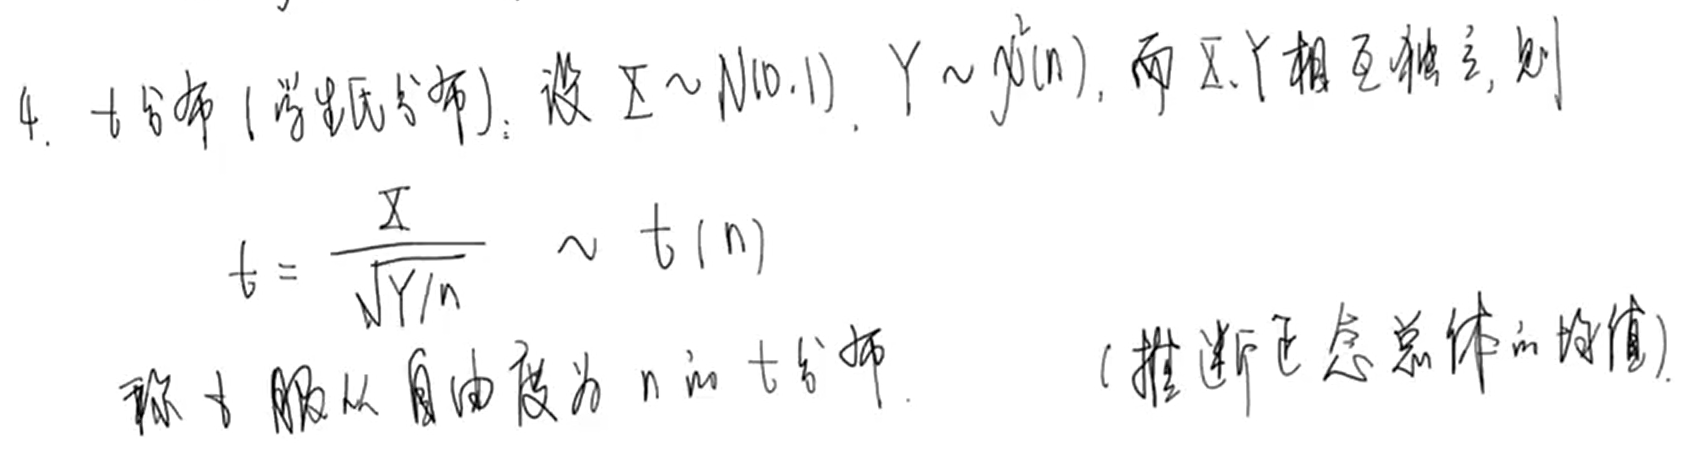 4. t分布(学生氏分布): 设 X ~ N(0,1), Y ~ χ²(n), 而 X、Y相互独立, 则
t = X / √(Y/n) ~ t(n)
称 t 服从自由度为 n 的 t 分布. (推断正态总体的均值).